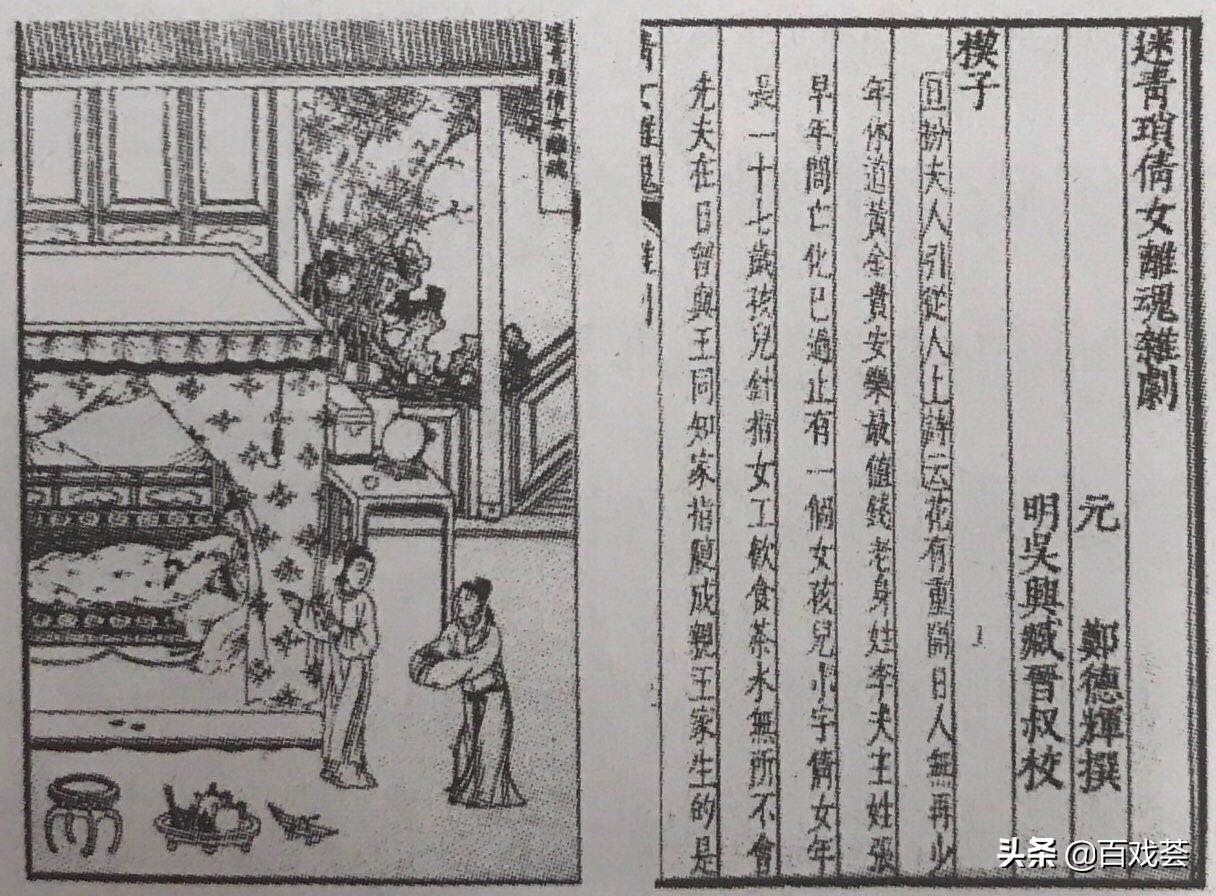 迷青瑣倩女離魂雜劇
元　鄭德輝撰
明吳興臧晉叔校
楔子
旦扮夫人引從人上詩云花有重開日人無再少
年休道黃金貴安樂最值錢老身姓李夫主姓張
早年間亡化已過止有一個女孩兒小字倩女年
長一十七歲孩兒針指女工飲食茶水無所不會
先夫在日曾與王同知家指腹成親王家生的是
倩女離魂
雜劇
迷青瑣倩女離魂
头条 @百戏荟